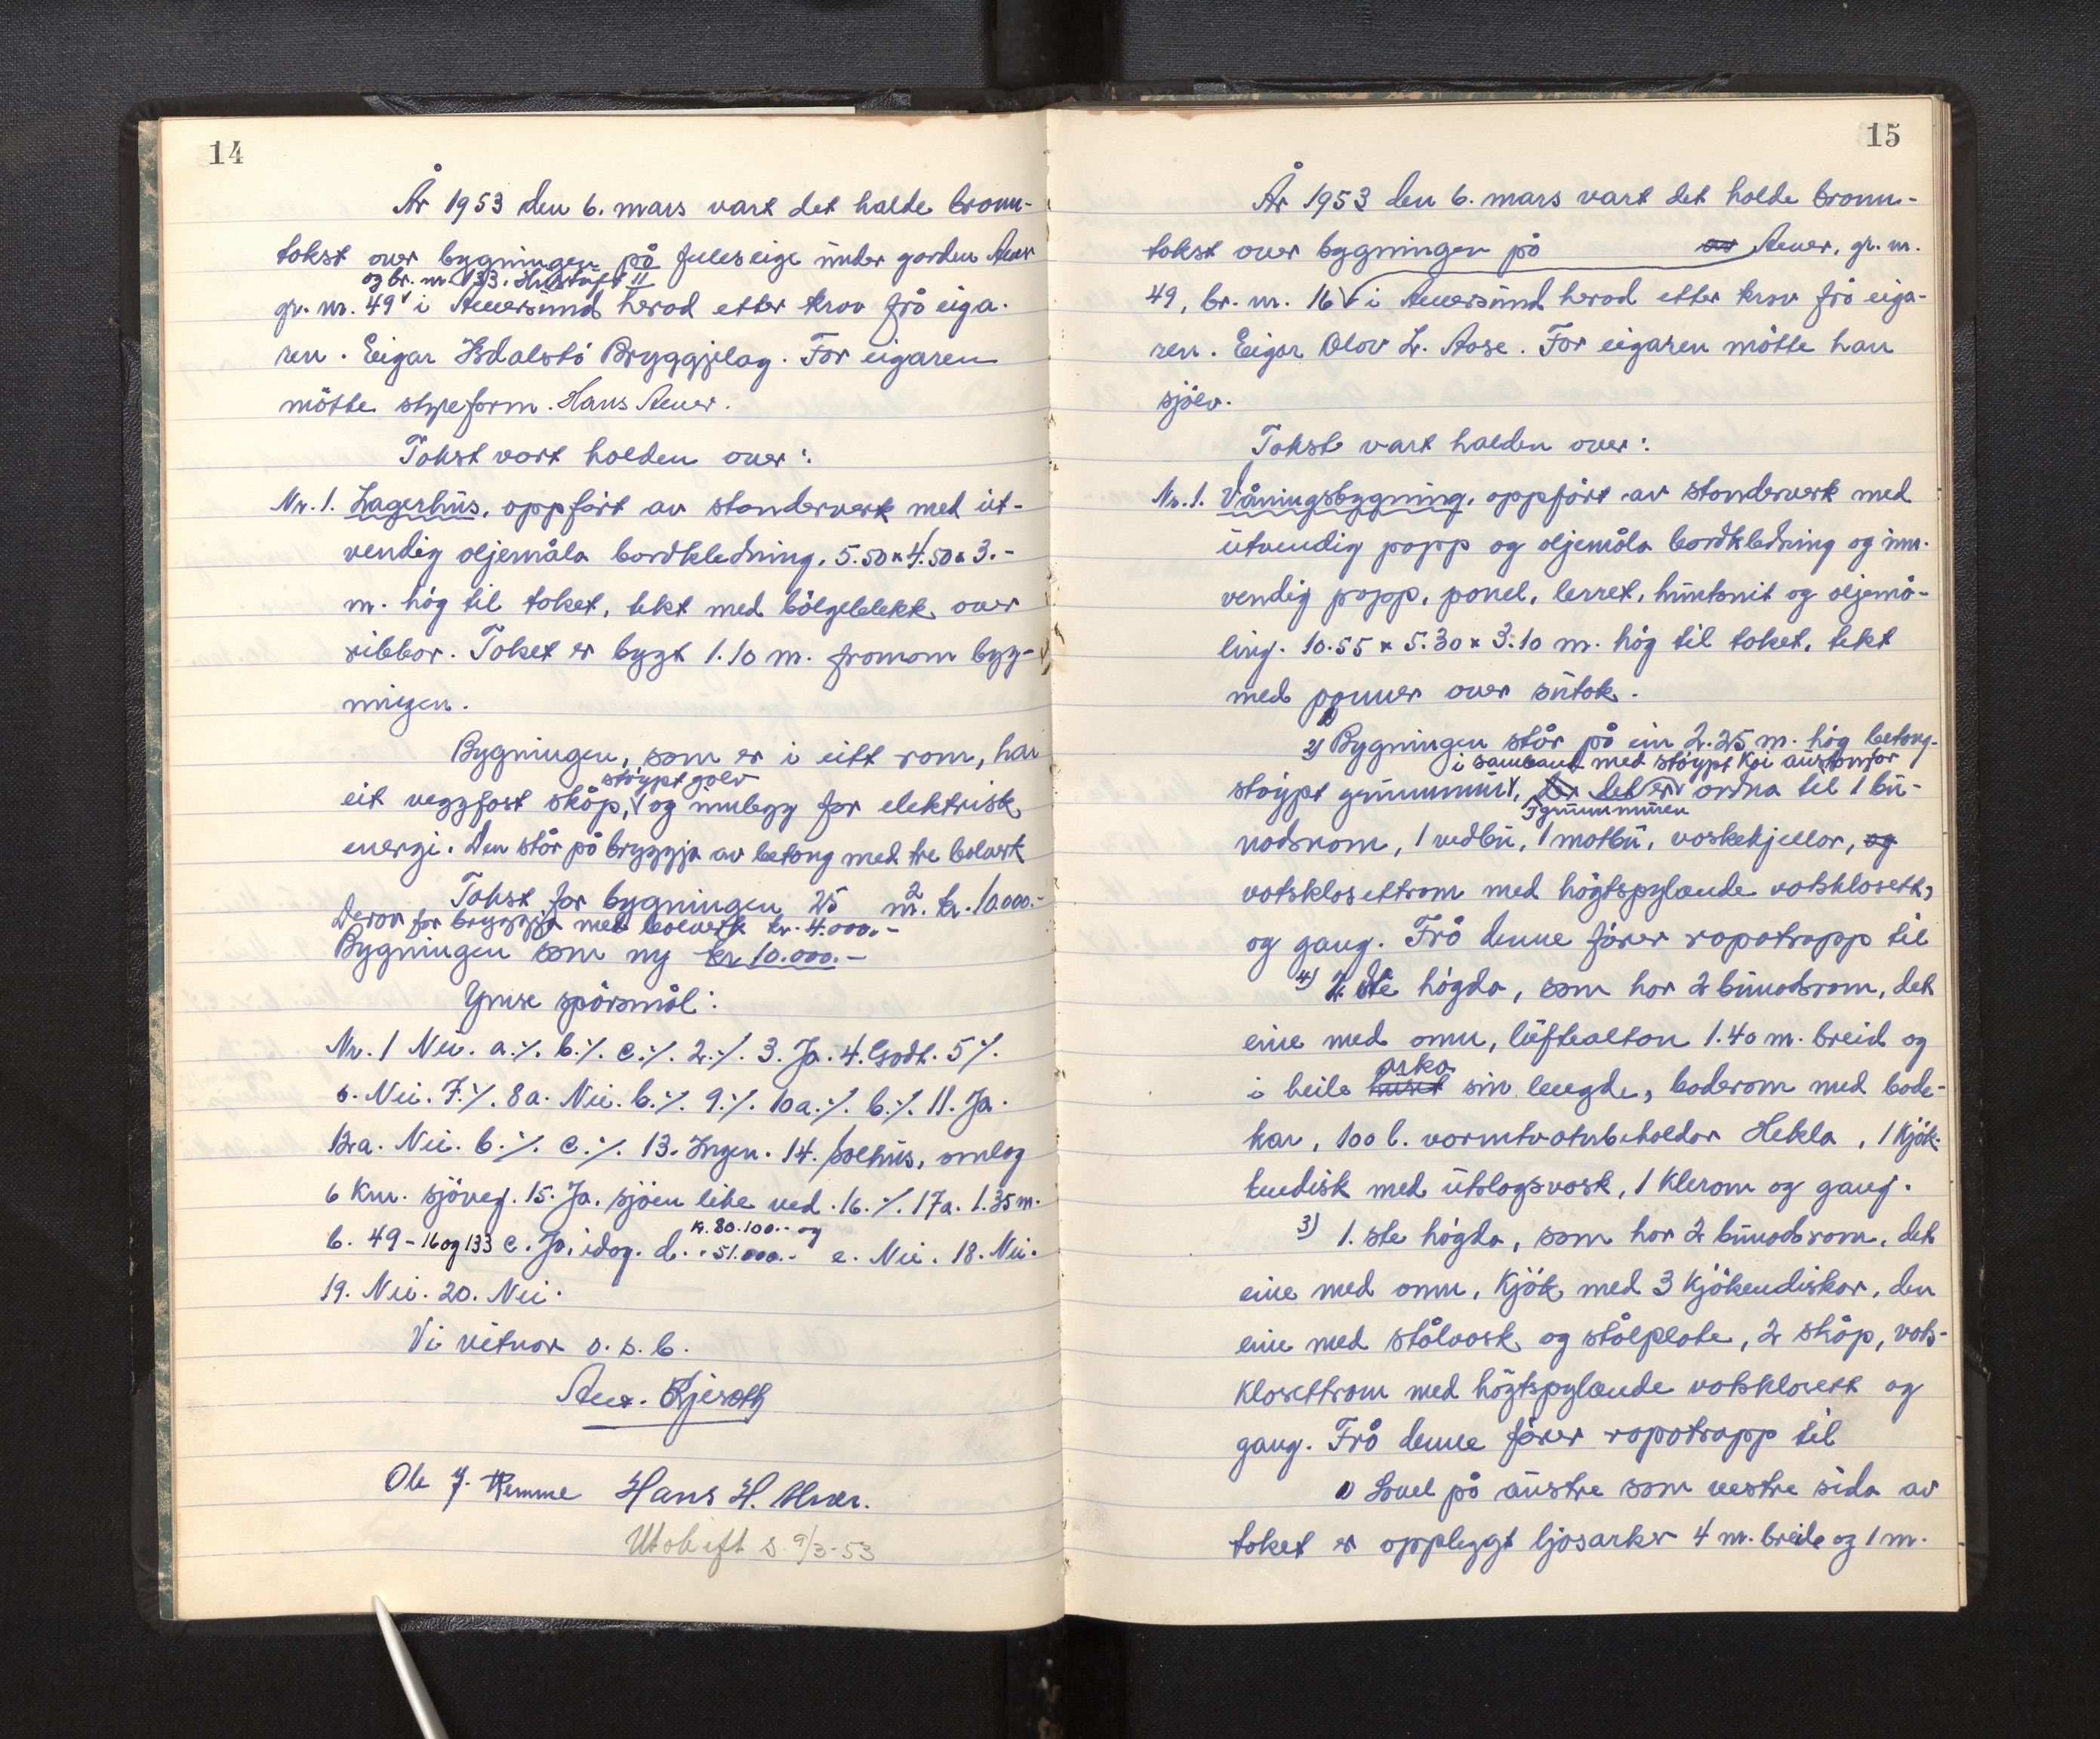 14
År 1953 den 6. mars vart det halde brann-
takst over bygningen på Juleseige under garden Alver
og br. nr. 133. Hustuft II
gr. nr. 49 i Alversund herad etter krav frå eiga-
ren. Eigar Isdalstø Bryggjelag. For eigaren
møtte styreform. Hans Alver.
Takst vart halden over:
Nr. 1. Lagerhus, oppført av standerverk med ut-
vendig oljemåla bordkledning. 5.50 x 4.50 x 3.-
m. høg til taket, tekt med bølgeblekk over
ribbor. Taket er bygt 1.10 m. framom byg-
ningen.
Bygningen, som er i eitt rom, har
støypt golv
eit veggfast skåp, og innlegg for elektrisk
energi. Den står på bryggja av betong med tre bolverk
Takst for bygningen 25 m². kr. 10.000.-
Derav for bryggja med bolverk kr. 4.000.-
Bygningen som ny kr 10.000.-
Ymse spørsmål:
Nr. 1 Nei. a. ./. b. ./. c. ./. 2. ./. 3. Ja. 4. Godt. 5 ./.
6. Nei. 7. ./. 8a. Nei. b. ./. 9. ./. 10a. ./. b. ./. 11. Ja.
12a. Nei. b. ./. c. ./. 13. Ingen. 14. , omlag
6 Km. sjøveg. 15. Ja. sjøen like ved. 16. ./. 17a. 1.35 m.
kr. 80.100.- og
b. 49-16 og 133 c. Ja, idag. d. " 51.000.- e. Nei. 18. Nei.
19. Nei. 20. Nei.
Vi vitnar o. s. b.
Ole J. Hemme Hans H. Alver.
Utskift s. 9/3-53
15
År 1953 den 6. mars vart det halde brann-
takst over bygningen på av Alver, gr. nr.
49, br. nr. 16 i Alversund herad etter krav frå eiga-
ren. Eigar Olav L. Aase. For eigaren møtte han
sjølv.
Takst vart halden over:
Nr. 1. Våningsbygning, oppført av standerverk med
utvendig papp og oljemåla bordkledning og inn-
vendig papp, panel, lerret, huntonit og oljemå-
ling. 10.55 x 5.30 x 3.10 m. høg til taket, tekt
med panner over sutak.
2) Bygningen står på ein 2.25 m. høg betong-
i samband med støypt kai austanfor
støypt grunnmur, der det er ordna til 1 bu-
I grunnmuren
nadsrom, 1 vedbu, 1 matbu, vaskekjellar, og
vatsklosettrom med högtspylande vatsklosett,
og gang. Frå denne fører rapatrapp til
4) 2. dre högda, som har 2 bunadsrom, det
eine med omn, luftealtan 1.40 m. breid og
arka
i heile huset sin lengde, baderom med bade-
kar, 100 l. varmtvatnbehaldar Hekla, 1 kjök-
kendisk med utslagsvask, 1 klerom og gang.
3) 1. ste högda, som har 2 bunadsrom, det
eine med omn, kjök med 3 kjökendiskar, den
eine med stålvask og stålplate, 2 skåp, vats-
klosettrom med högtspylande vatsklosett og
gang. Frå denne fører rapatrapp til
1) Såvel på austre som vestre sida av
taket er opplygt ljosarker 4 m. breide og 1 m.